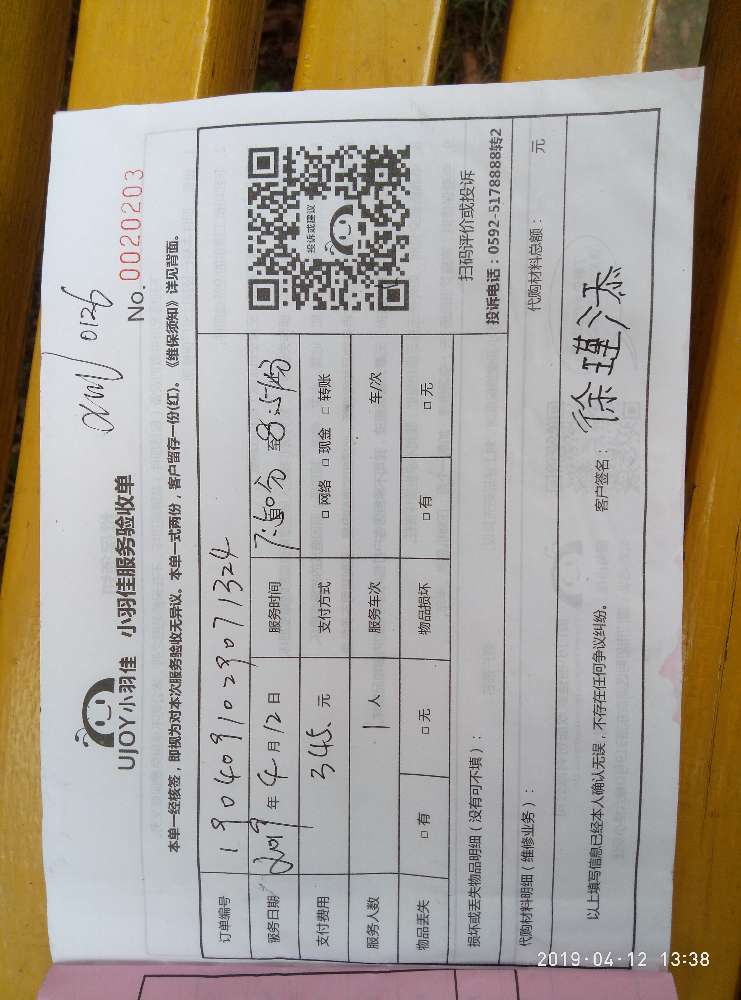 UJOY小羽佳 小羽佳服务验收单
0126
No.0020203
本单一经核签，即视为对本次服务验收无异议。本单一式两份，客户留存一份(红)。《维保须知》详见背面。
订单编号 1904091029071324
服务日期 2019年4月12日 服务时间 至 8:51分
支付费用 345.元 支付方式 □网络 □现金 □转账
服务人数 1人 服务车次 车/次
物品丢失 □有 □无 物品损坏 □有 □无
投诉或建议
扫码评价或投诉
投诉电话：0592-5178888转2
损坏或丢失物品明细（没有可不填）：
代购材料明细（维修业务）： 代购材料总额： 元
以上填写信息已经本人确认无误，不存在任何争议纠纷。 客户签名： 徐瑾添
2019-04-12 13:38